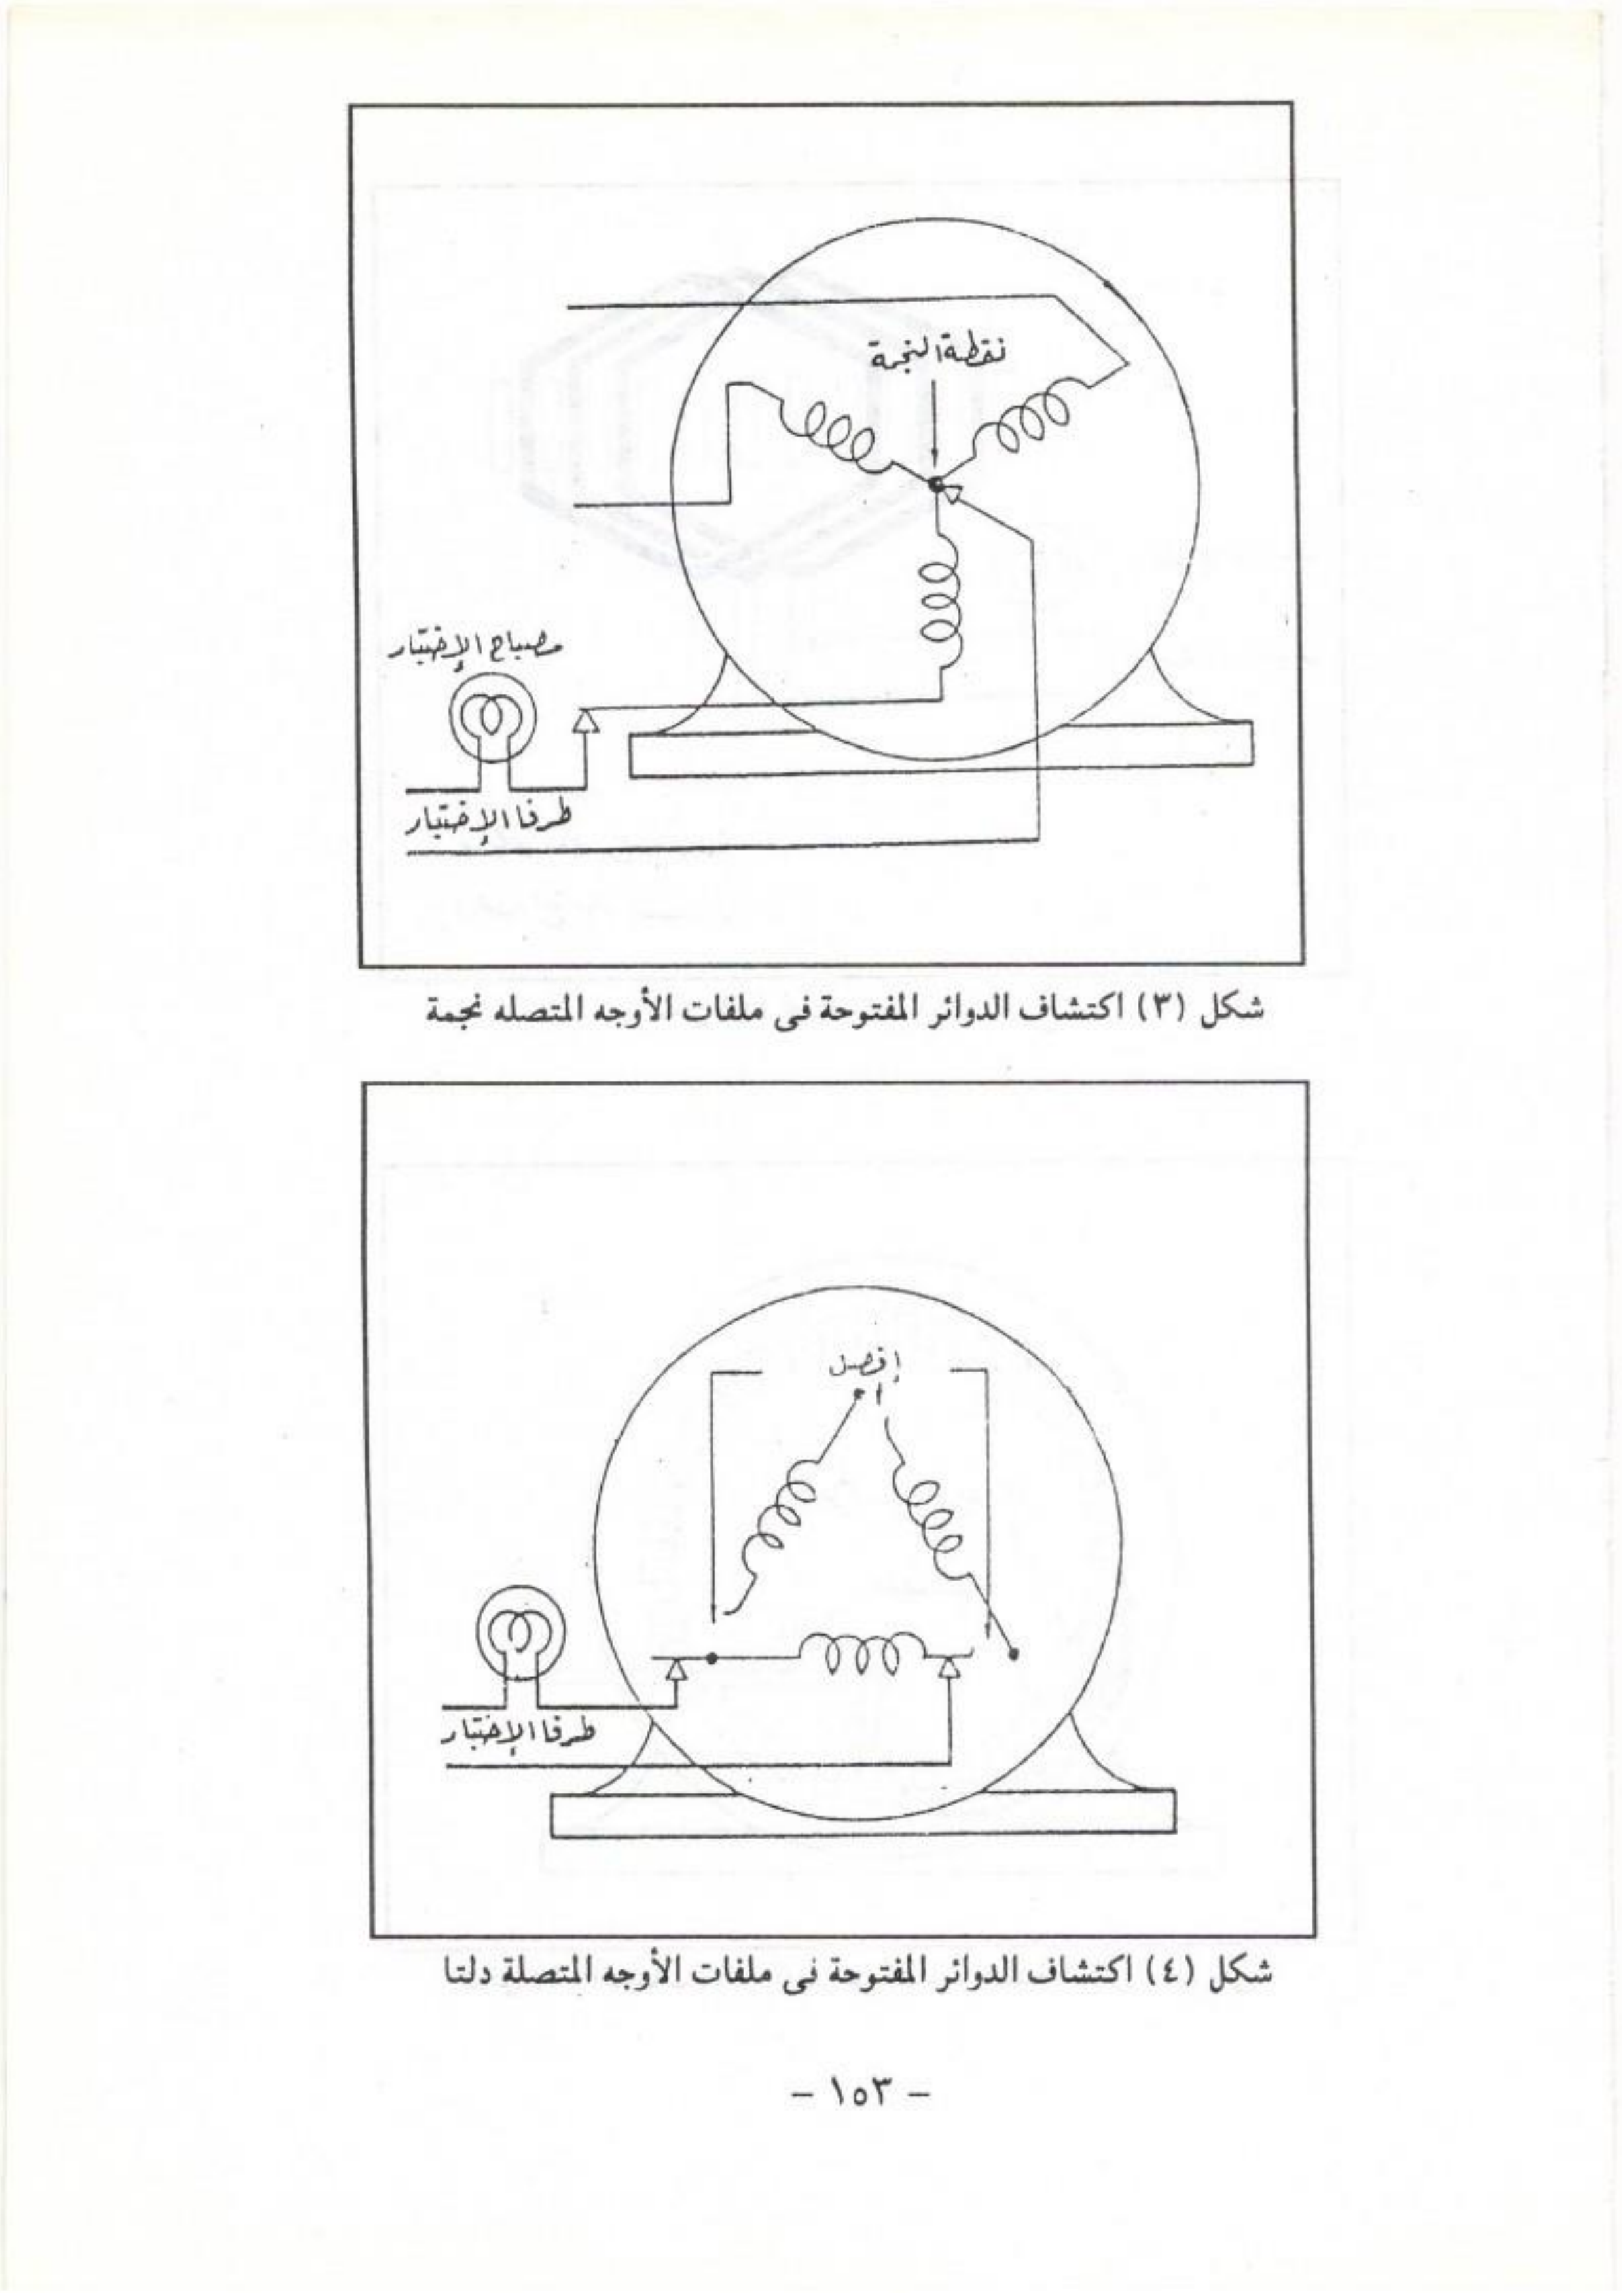 نقطة النجمة
مصباح الإختبار
طرفا الإختبار
شكل (٣) اكتشاف الدوائر المفتوحة فى ملفات الأوجه المتصله نجمة
إفصل
طرفا الإختبار
شكل (٤) اكتشاف الدوائر المفتوحة فى ملفات الأوجه المتصلة دلتا
– ١٥٣ –